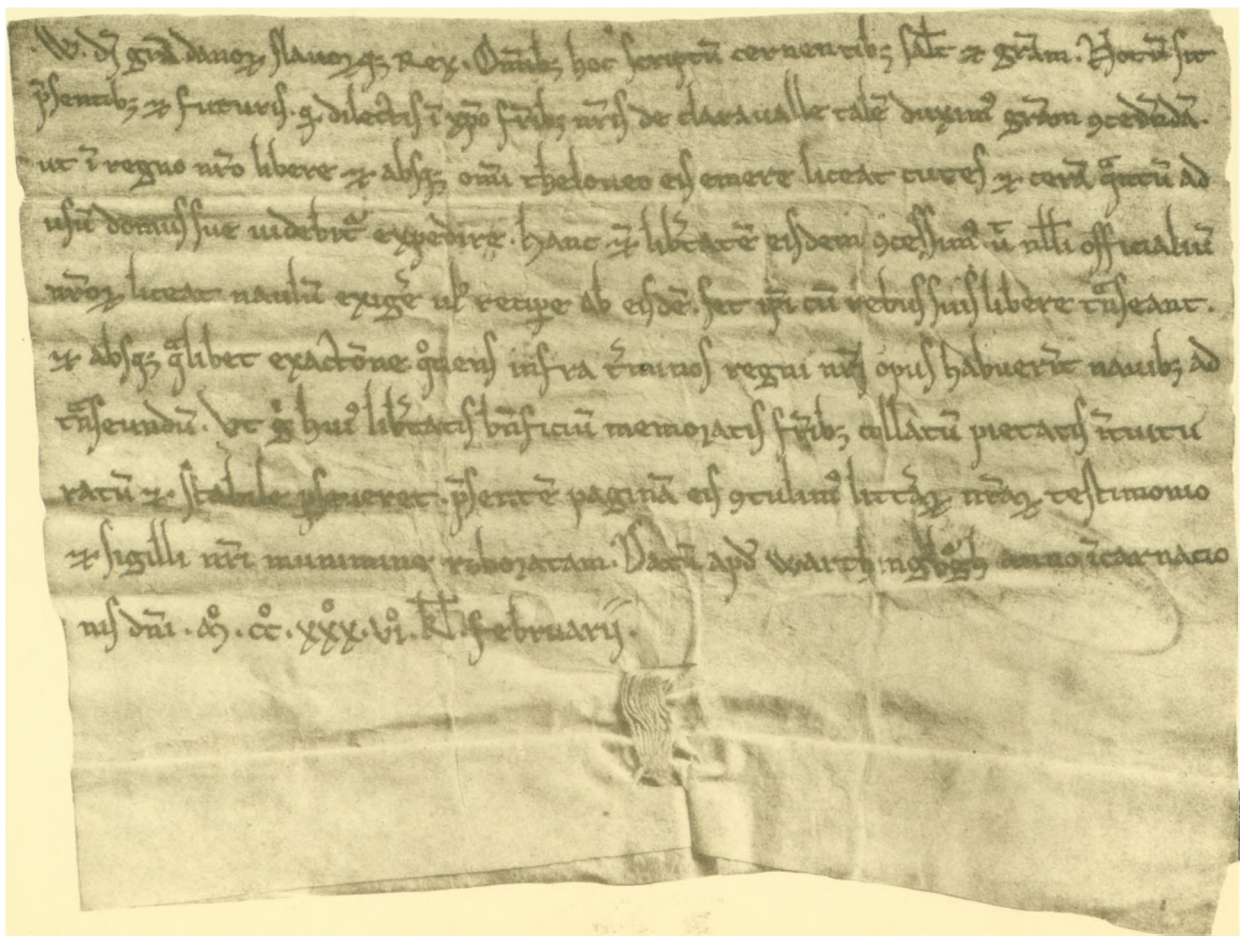 W. dī grā danoꝝ slauoꝝqꝫ Rex. Omībꝫ hoc scriptū cernentibꝫ salt̄ ⁊ grām. Notū sit
p̄sentibꝫ ⁊ futuris. qͥ dilectis ī xp̄o fr̄ibꝫ nr̄is de claraualle talē duximꝰ grām ꝯcedēdā.
ut ī regno nr̄o libere ⁊ absqꝫ om̄i theloneo eis emere liceat cutes ⁊ cerā qͣntū ad
usū domus sue uidebit᷑ expedire. hanc ⁊ lib̄tatē eisdem ꝯcessimꝰ. ut̄ nłłi officialiū
nr̄oꝝ liceat naulū exiḡe uł recipe ab eisdē. set ip̄i cū rebus suis libere tn̄seant.
⁊ absqꝫ qͣlibet exactōne qͦciens infra t̄minos regni nr̄i opus habuerīt nauibꝫ ad
tn̄seundū. Vt gͦ huiꝰ lib̄tatis bn̄ficiū memoratis fr̄ibꝫ collatū pietatis ītuitu
ratū ⁊ stabile ꝑseueret. p̄sentē paginā eis ꝯtulimꝰ litt̄aꝝ nr̄aꝝ testimonio
⁊ sigilli nr̄i munimine roboratam. Datū apd̄ anno īcarnacio
nis dn̄i. mͦ. ccͦ. xxxͦ. viͦ. kł. februarij.